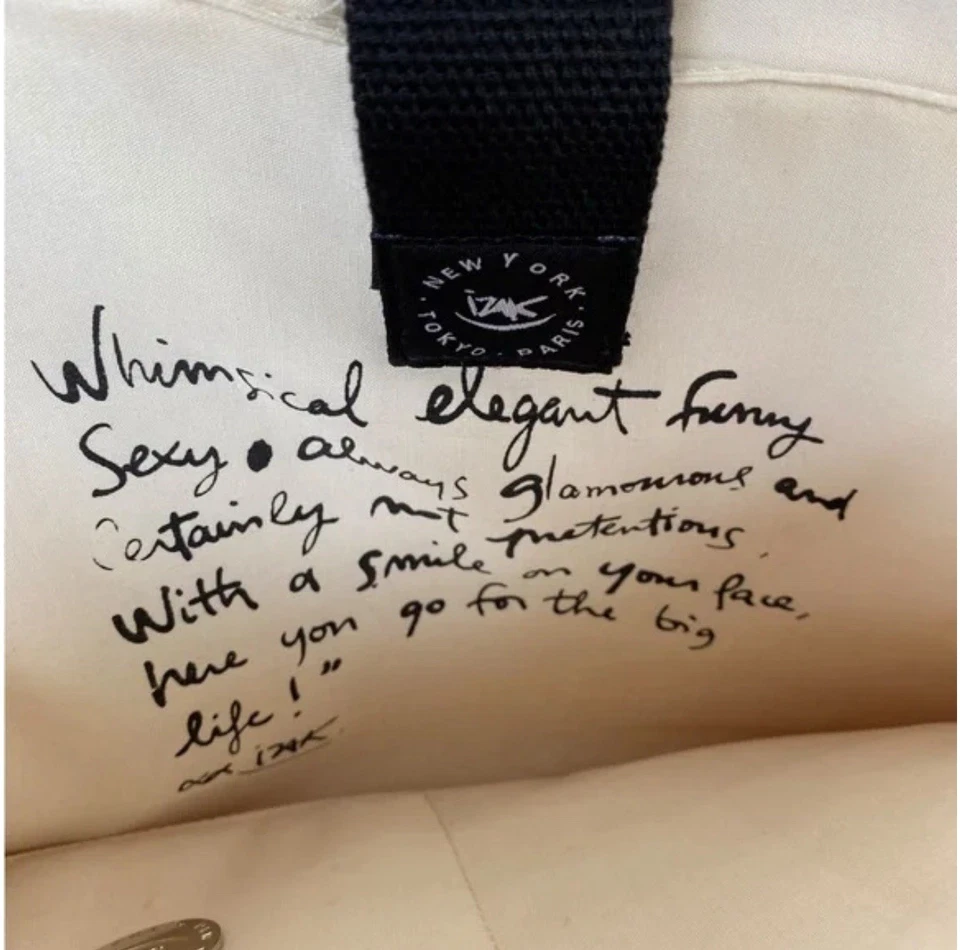 NEW YORK · PARIS · TOKYO ·
izak
Whimsical elegant funny
Sexy • always glamourous and
Certainly not pretentious.
With a smile on your face,
here you go for the big
life!”
izak